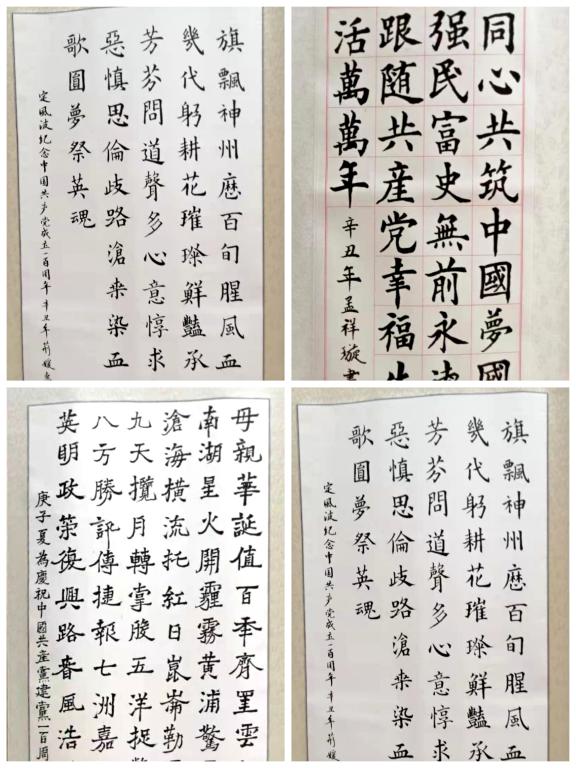 旗飄神州厯百旬腥風血
幾代躬耕花璀璨鮮豔承
芳芬問道聲多心意惇求
惡慎思倫歧路滄桒染血
歌圓夢祭英魂
定風波纪念中国共产党成立一百周年 辛丑年
同心共筑中國夢國
强民富史無前永
跟随共産党幸福生
活萬萬年
辛丑年孟祥璇書
母親華誕值百秊齊雲
南湖星火開霾霧黄浦驚
滄海橫流托紅日崑崙勒
九天攬月轉掌股五洋捉
八方勝訊傳捷報七洲嘉
英明政策復興路春風浩
庚子夏為慶祝中國共產黨建黨一百周
旗飄神州厯百旬腥風血
幾代躬耕花璀璨鮮豔承
芳芬問道聲多心意惇求
惡慎思倫歧路滄桒染血
歌圓夢祭英魂
定風波纪念中国共产党成立一百周年 辛丑年